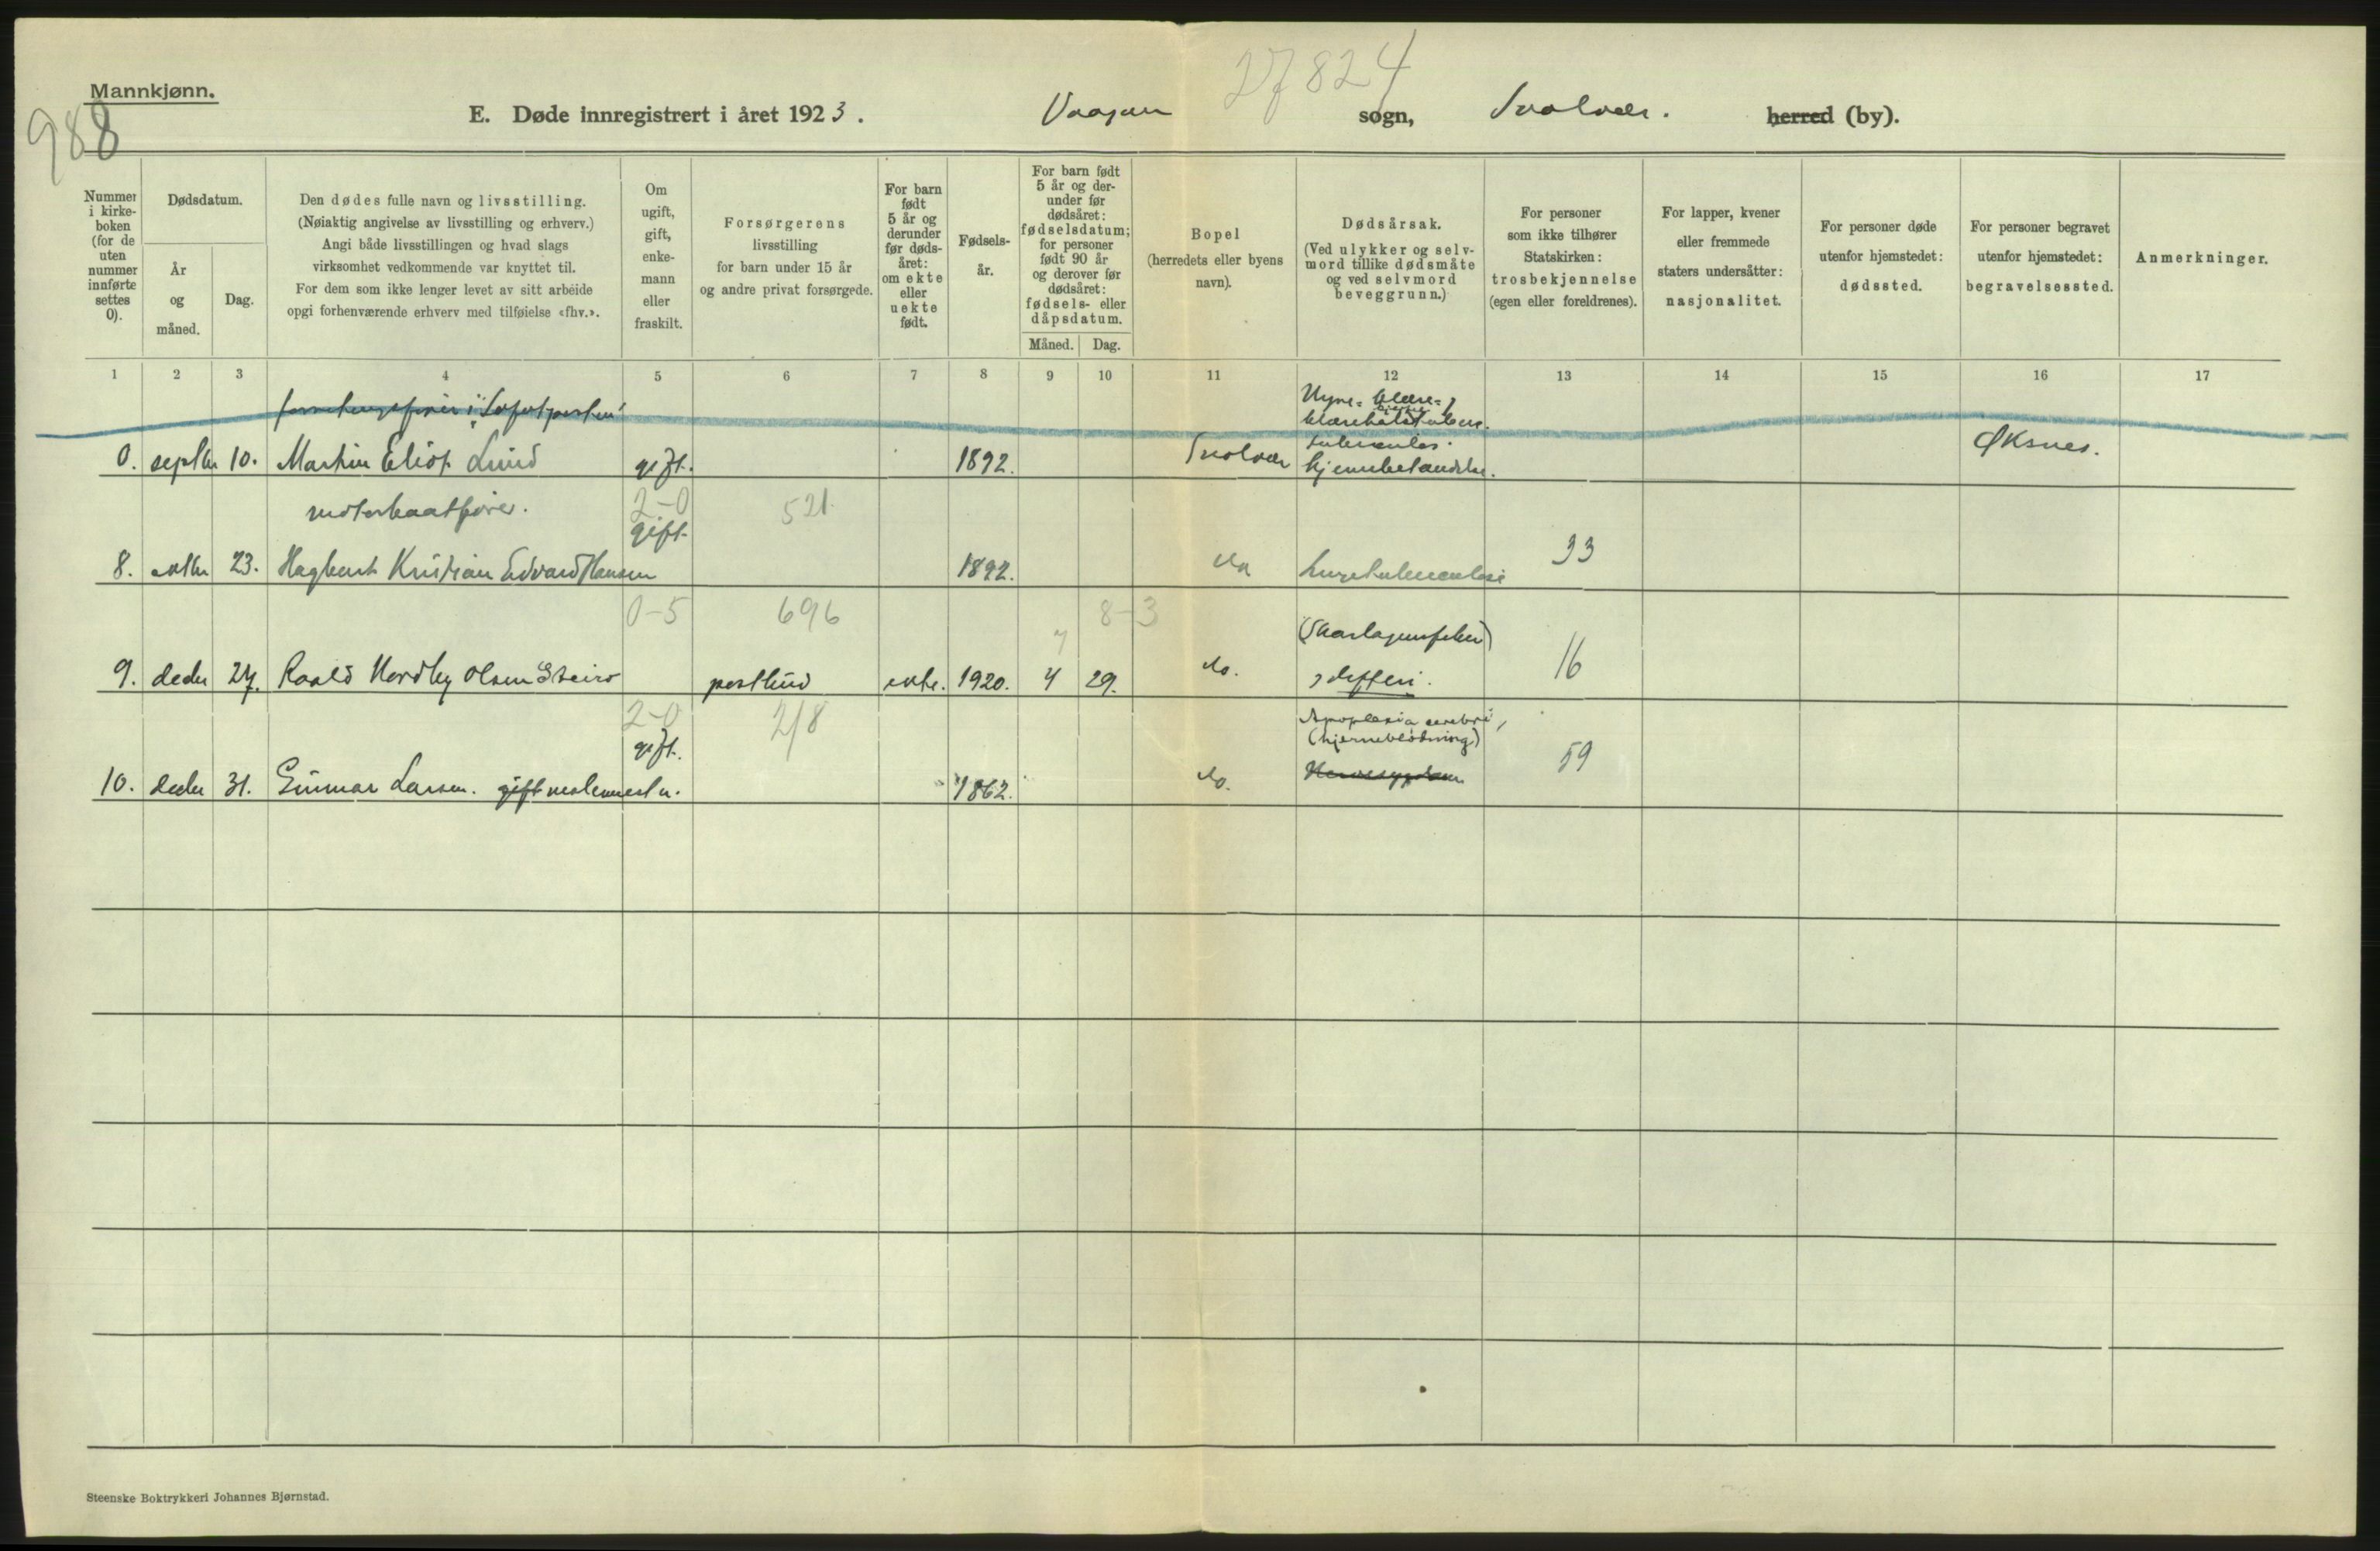 27824
Mannkjønn.
988
E. Døde innregistrert i året 1923. Vaagan sogn, Svolvær. herred (by).
Nummer i kirkeboken (for de uten nummer innførte settes 0).
Dødsdatum.
År og måned.
Dag.
Den dødes fulle navn og livsstilling.
(Nøiaktig angivelse av livsstilling og erhverv.)
Angi både livsstillingen og hvad slags
virksomhet vedkommende var knyttet til.
For dem som ikke lenger levet av sitt arbeide
opgi forhenværende erhverv med tilføielse «fhv.».
Om ugift, gift, enkemann eller fraskilt.
Forsørgerens
livsstilling
for barn under 15 år
og andre privat forsørgede.
For barn født 5 år og derunder før dødsåret: om ekte eller uekte født.
Fødselsår.
For barn født 5 år og derunder før dødsåret: fødselsdatum; for personer født 90 år og derover før dødsåret: fødsels- eller dåpsdatum.
Måned. Dag.
Bopel
(herredets eller byens
navn).
Dødsårsak.
(Ved ulykker og selvmord tillike dødsmåte og ved selvmord beveggrunn.)
For personer
som ikke tilhører
Statskirken:
trosbekjennelse
(egen eller foreldrenes).
For lapper, kvener
eller fremmede
staters undersåtter:
nasjonalitet.
For personer døde
utenfor hjemstedet:
dødssted.
For personer begravet
utenfor hjemstedet:
begravelsessted.
Anmerkninger.
1 2 3 4 5 6 7 8 9 10 11 12 13 14 15 16 17
forretningsfører i "Lofotposten"
Nyre- blære-
0. septbr 10. Martin Eliot Lund gift. 1892. Svolvær hjernebetændelse. Øksnes.
motorbaatfører. 2-0 521
gift.
8. oktbr 23. Hagbart Kristian Edvard Hansen 1892. do lungetuberculose 33
0-5 696 8-3
7 (Skarlagensfeber)
9. decbr 27. Roald Nordby Olsen Steiro postbud ekte. 1920. 4 29. do. difteri. 16
2-0 218 Apoplexia cerebri,
gift. (hjerneblødning)
10. decbr 31. Gunnar Larsen. gift 1862. do. 59
Steenske Boktrykkeri Johannes Bjørnstad.